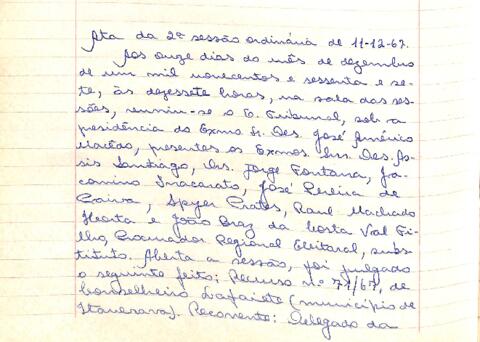 Ata da 2ª sessão ordinária de 11-12-67.
Aos onze dias do mês de dezembro
de um mil novecentos e sessenta e se-
te, às dezessete horas, na sala das ses-
sões, reuniu-se o E. Tribunal, sob a
presidência do Exmo Sr. Des. José Américo
Macêdo, presentes os Exmos. Srs. Des. As-
sis Santiago, Drs. Jorge Fontana, Ja-
comino Inacarato, José Pereira de
Paiva, Spyer Prates, Raul Machado
Horta e João Braz da Costa Val Fi-
lho, Procurador Regional Eleitoral, subs-
tituto. Aberta a sessão, foi julgado
o seguinte feito: Recurso nº 71/67, de
Conselheiro Lafaiete (município de
Itaverava). Recorrente: Delegado da